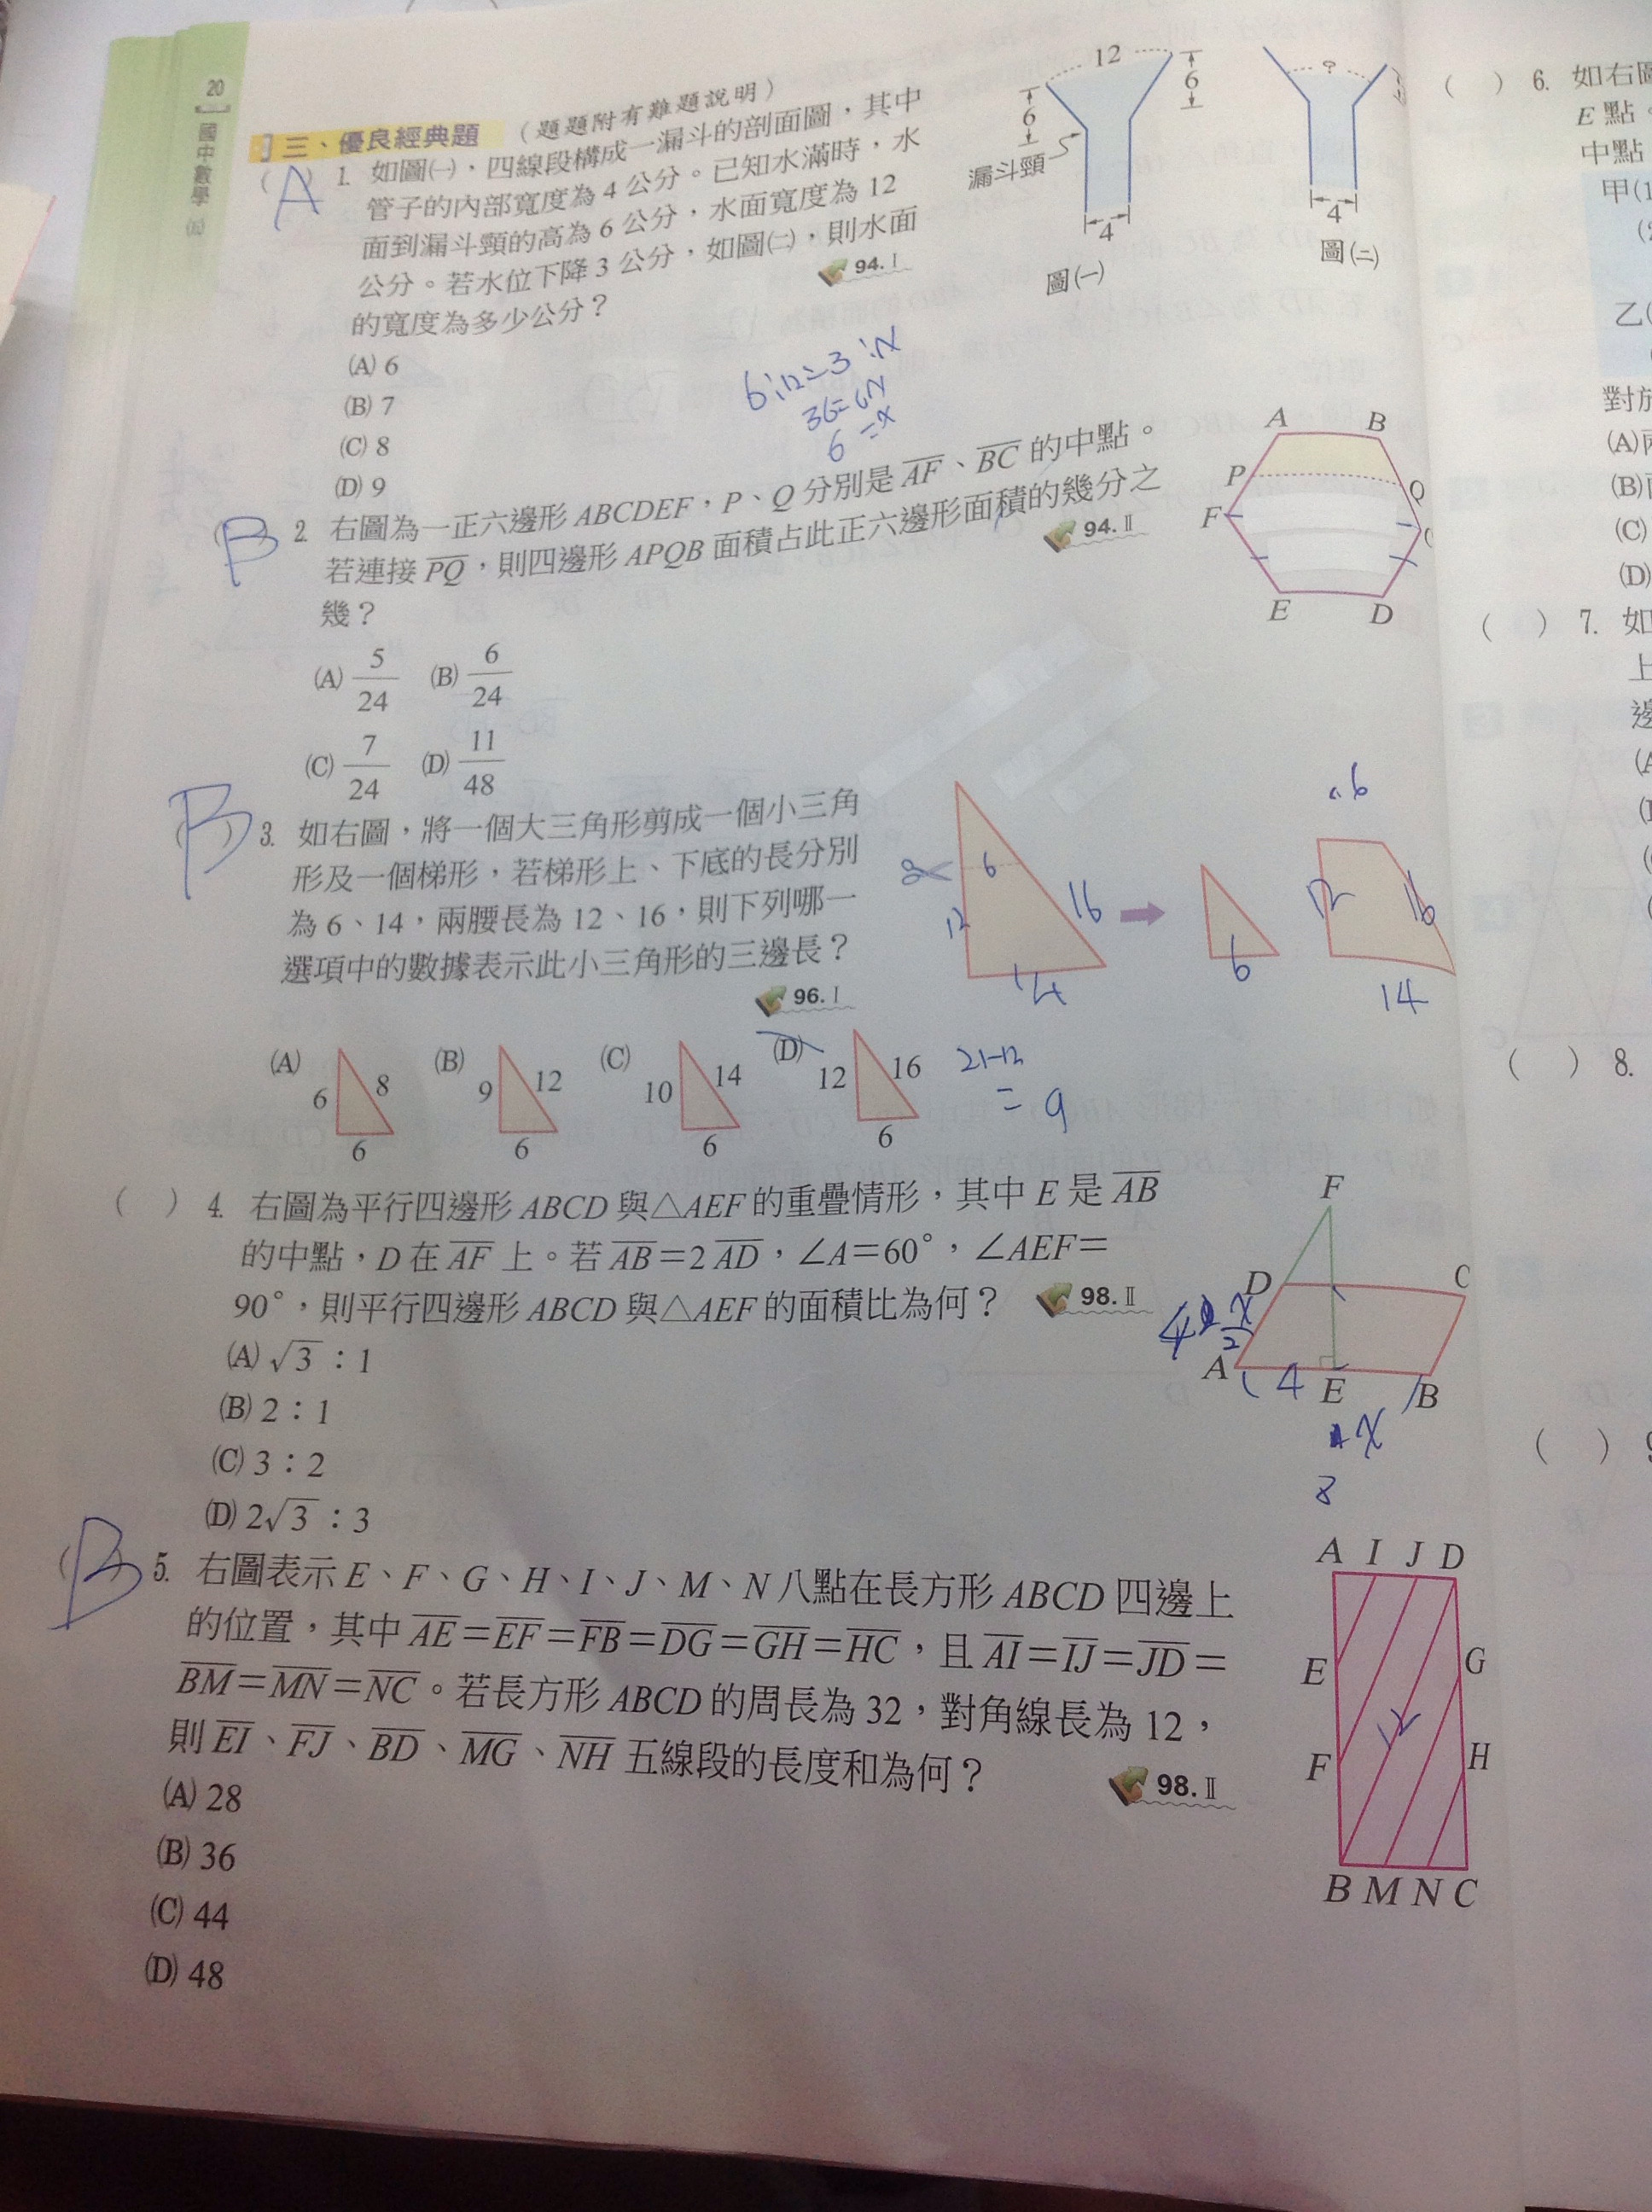 20
國中數學
(五)
三、優良經典題 (題題附有難題說明)
( ) A 1. 如圖㈠,四線段構成一漏斗的剖面圖,其中
管子的內部寬度為 4 公分。已知水滿時,水
面到漏斗頸的高為 6 公分,水面寬度為 12
公分。若水位下降 3 公分,如圖㈡,則水面
的寬度為多少公分? 94.Ⅰ
(A) 6
(B) 7
(C) 8
(D) 9
12
6
6
漏斗頸
4
圖㈠
?
4
圖㈡
6:12=3:x
36=6x
6=x
B 2. 右圖為一正六邊形 ABCDEF,P、Q 分別是 AF、BC 的中點。
若連接 PQ,則四邊形 APQB 面積占此正六邊形面積的幾分之
幾? 94.Ⅱ
(A) 5/24 (B) 6/24
(C) 7/24 (D) 11/48
A B
P Q
F
E D
B 3. 如右圖,將一個大三角形剪成一個小三角
形及一個梯形,若梯形上、下底的長分別
為 6、14,兩腰長為 12、16,則下列哪一
選項中的數據表示此小三角形的三邊長?
96.Ⅰ
6
12
16
14
6
6
12
16
14
(A) 6 8 6
(B) 9 12 6
(C) 10 14 6
(D) 12 16 6
21-12
= 9
( ) 4. 右圖為平行四邊形 ABCD 與△AEF 的重疊情形,其中 E 是 AB
的中點,D 在 AF 上。若 AB=2 AD,∠A=60°,∠AEF=
90°,則平行四邊形 ABCD 與△AEF 的面積比為何? 98.Ⅱ
(A) √3 : 1
(B) 2 : 1
(C) 3 : 2
(D) 2√3 : 3
F
D C
4 x/2
A 4 E B
x
8
( ) B 5. 右圖表示 E、F、G、H、I、J、M、N 八點在長方形 ABCD 四邊上
的位置,其中 AE=EF=FB=DG=GH=HC,且 AI=IJ=JD=
BM=MN=NC。若長方形 ABCD 的周長為 32,對角線長為 12,
則 EI、FJ、BD、MG、NH 五線段的長度和為何? 98.Ⅱ
(A) 28
(B) 36
(C) 44
(D) 48
A I J D
E G
12
F H
B M N C
( ) 6. 如右圖
E 點。
中點
甲(1
乙(
對於
(A)
(B)
(C)
(D)
( ) 7. 如
上
邊
( ) 8.
( )